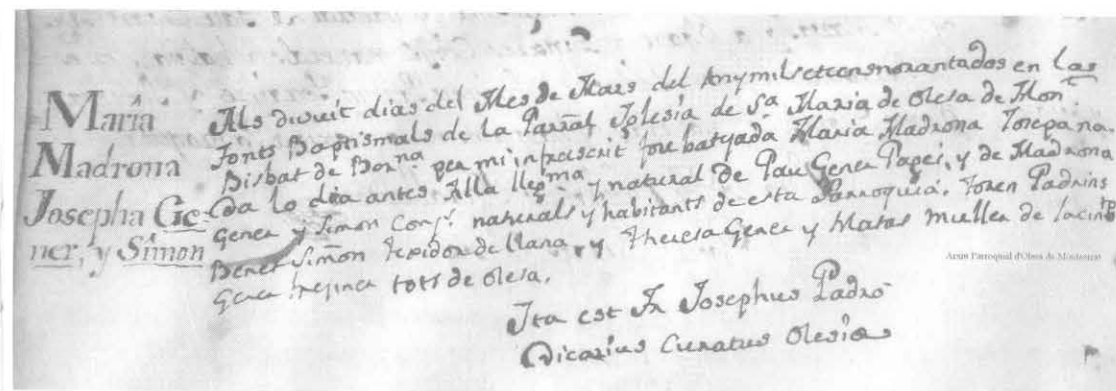 Maria
Madrona
Josepha Ge-
ner, y Simon
Als divuit dias del Mes de Mars del Any mil setcens norantados en las
fonts Baptismals de la Parral Iglesia de Sa Maria de Olesa de Mont
Bisbat de Barna per mi infrascrit fore batejada Maria Madrona Josepa na
da lo dia antes filla llegma y natural de Pau Gener Paper, y de Madrona
Gener y Simon Conj. naturals y habitants de esta Parroquia. foren Padrins
Benet Simon texidor de llana, y Theresa Gener y Matas muller de Jacinto
Gener tots de olesa.
Ita est Fr Josephus Padró
Vicarius Curatus Olesiæ
Arxiu Parroquial d'Olesa de Montserrat